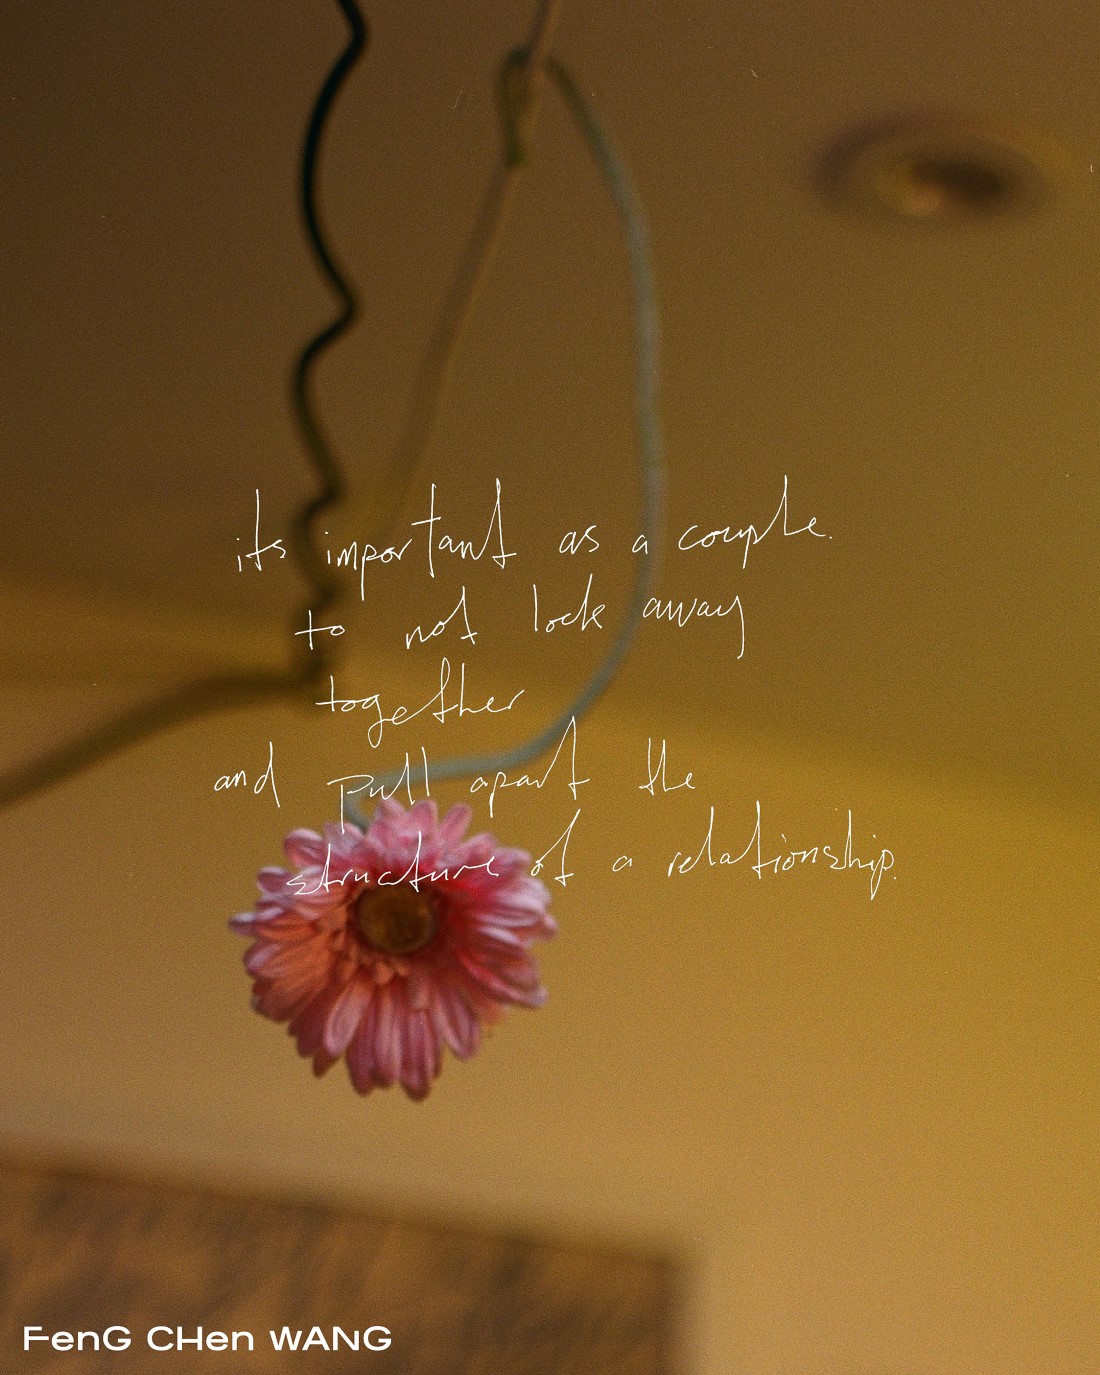 its important as a couple.
to not lock away
together
and pull apart the
structure of a relationship.
FenG CHen WANG